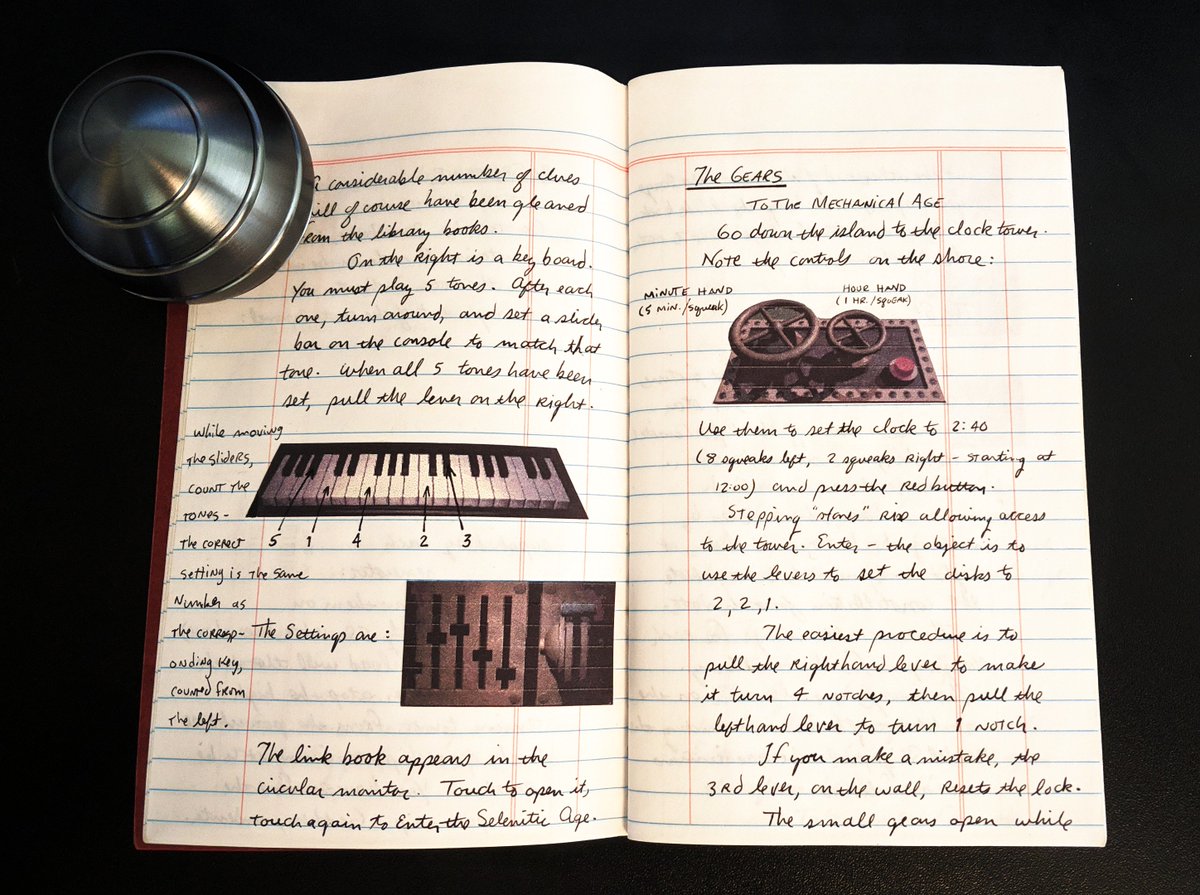 A considerable number of clues
will of course have been gleaned
from the library books.
On the Right is a key board.
You must play 5 tones. After each
one, turn around, and set a slider
bar on the console to match that
tone. When all 5 tones have been
set, pull the lever on the Right.
While moving
the sliders,
COUNT The
TONES -
The correct
setting is the same
Number as
The corresp-
onding Key,
counted from
The left.
5 1 4 2 3
The Settings are:
The link book appears in the
circular monitor. Touch to open it,
touch again to Enter the Selenitic Age.
The GEARS
To The MECHANICAL AGE
Go down the island to the clock tower.
Note the controls on the shore:
MINUTE HAND
(5 MIN./squeak)
HOUR HAND
(1 HR./squeak)
Use them to set the clock to 2:40
(8 squeaks left, 2 squeaks Right - starting at
12:00) and press the Red button.
Stepping "stones" Rise allowing access
to the tower. Enter - the object is to
use the levers to set the disks to
2, 2, 1.
The easiest procedure is to
pull the Righthand lever to make
it turn 4 notches, then pull the
lefthand lever to turn 1 notch.
If you make a mistake, the
3rd lever, on the wall, Resets the lock.
The small gears open while